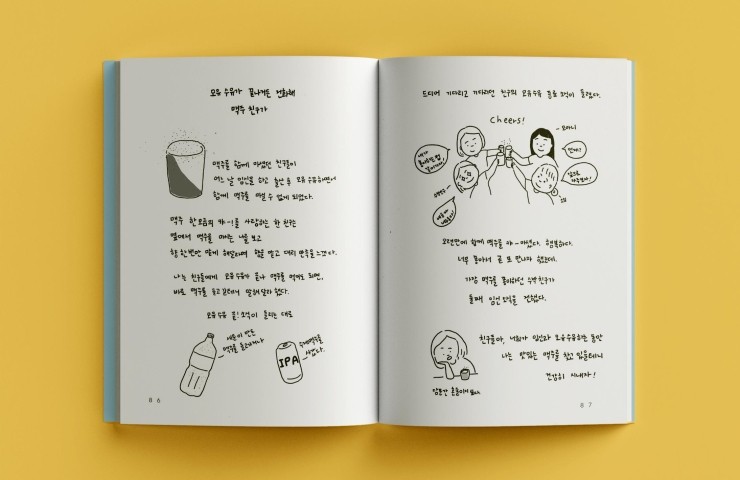 모유 수유가 끝나거든 전화해
맥주 친구가
맥주를 함께 마셨던 친구들이
어느 날 임신을 하고 출산 후 모유 수유하면서
함께 맥주를 마실 수 없게 되었다.
맥주 한 모금의 캬-!를 사랑하는 한 친구는
옆에서 맥주를 마시는 나를 보고
한 번만 맡게 해달라며 향을 맡고 대리 만족을 느꼈다.
나는 친구들에게 모유 수유가 끝나 맥주를 먹게 되면,
바로 맥주를 들고 갈테니 말해달라 했다.
모유 수유 끝! 소식이 들리는 대로
맥주를
IPA
수제맥주를
샀다.
86
드디어 기다리고 기다리던 친구의 모유 수유 종료 소식이 들렸다.
Cheers!
오랜만에 함께 맥주를 캬-마셨다. 행복하다.
너무 좋아서 곧 또 만나자 했는데,
가장 맥주를 좋아하던 친구가
둘째 임신 소식을 전했다.
친구들아, 너희가 임신과 모유수유하는 동안
나는 맛있는 맥주를 찾고 있을테니
건강히 지내자!
당분간 혼술이 되다.
87